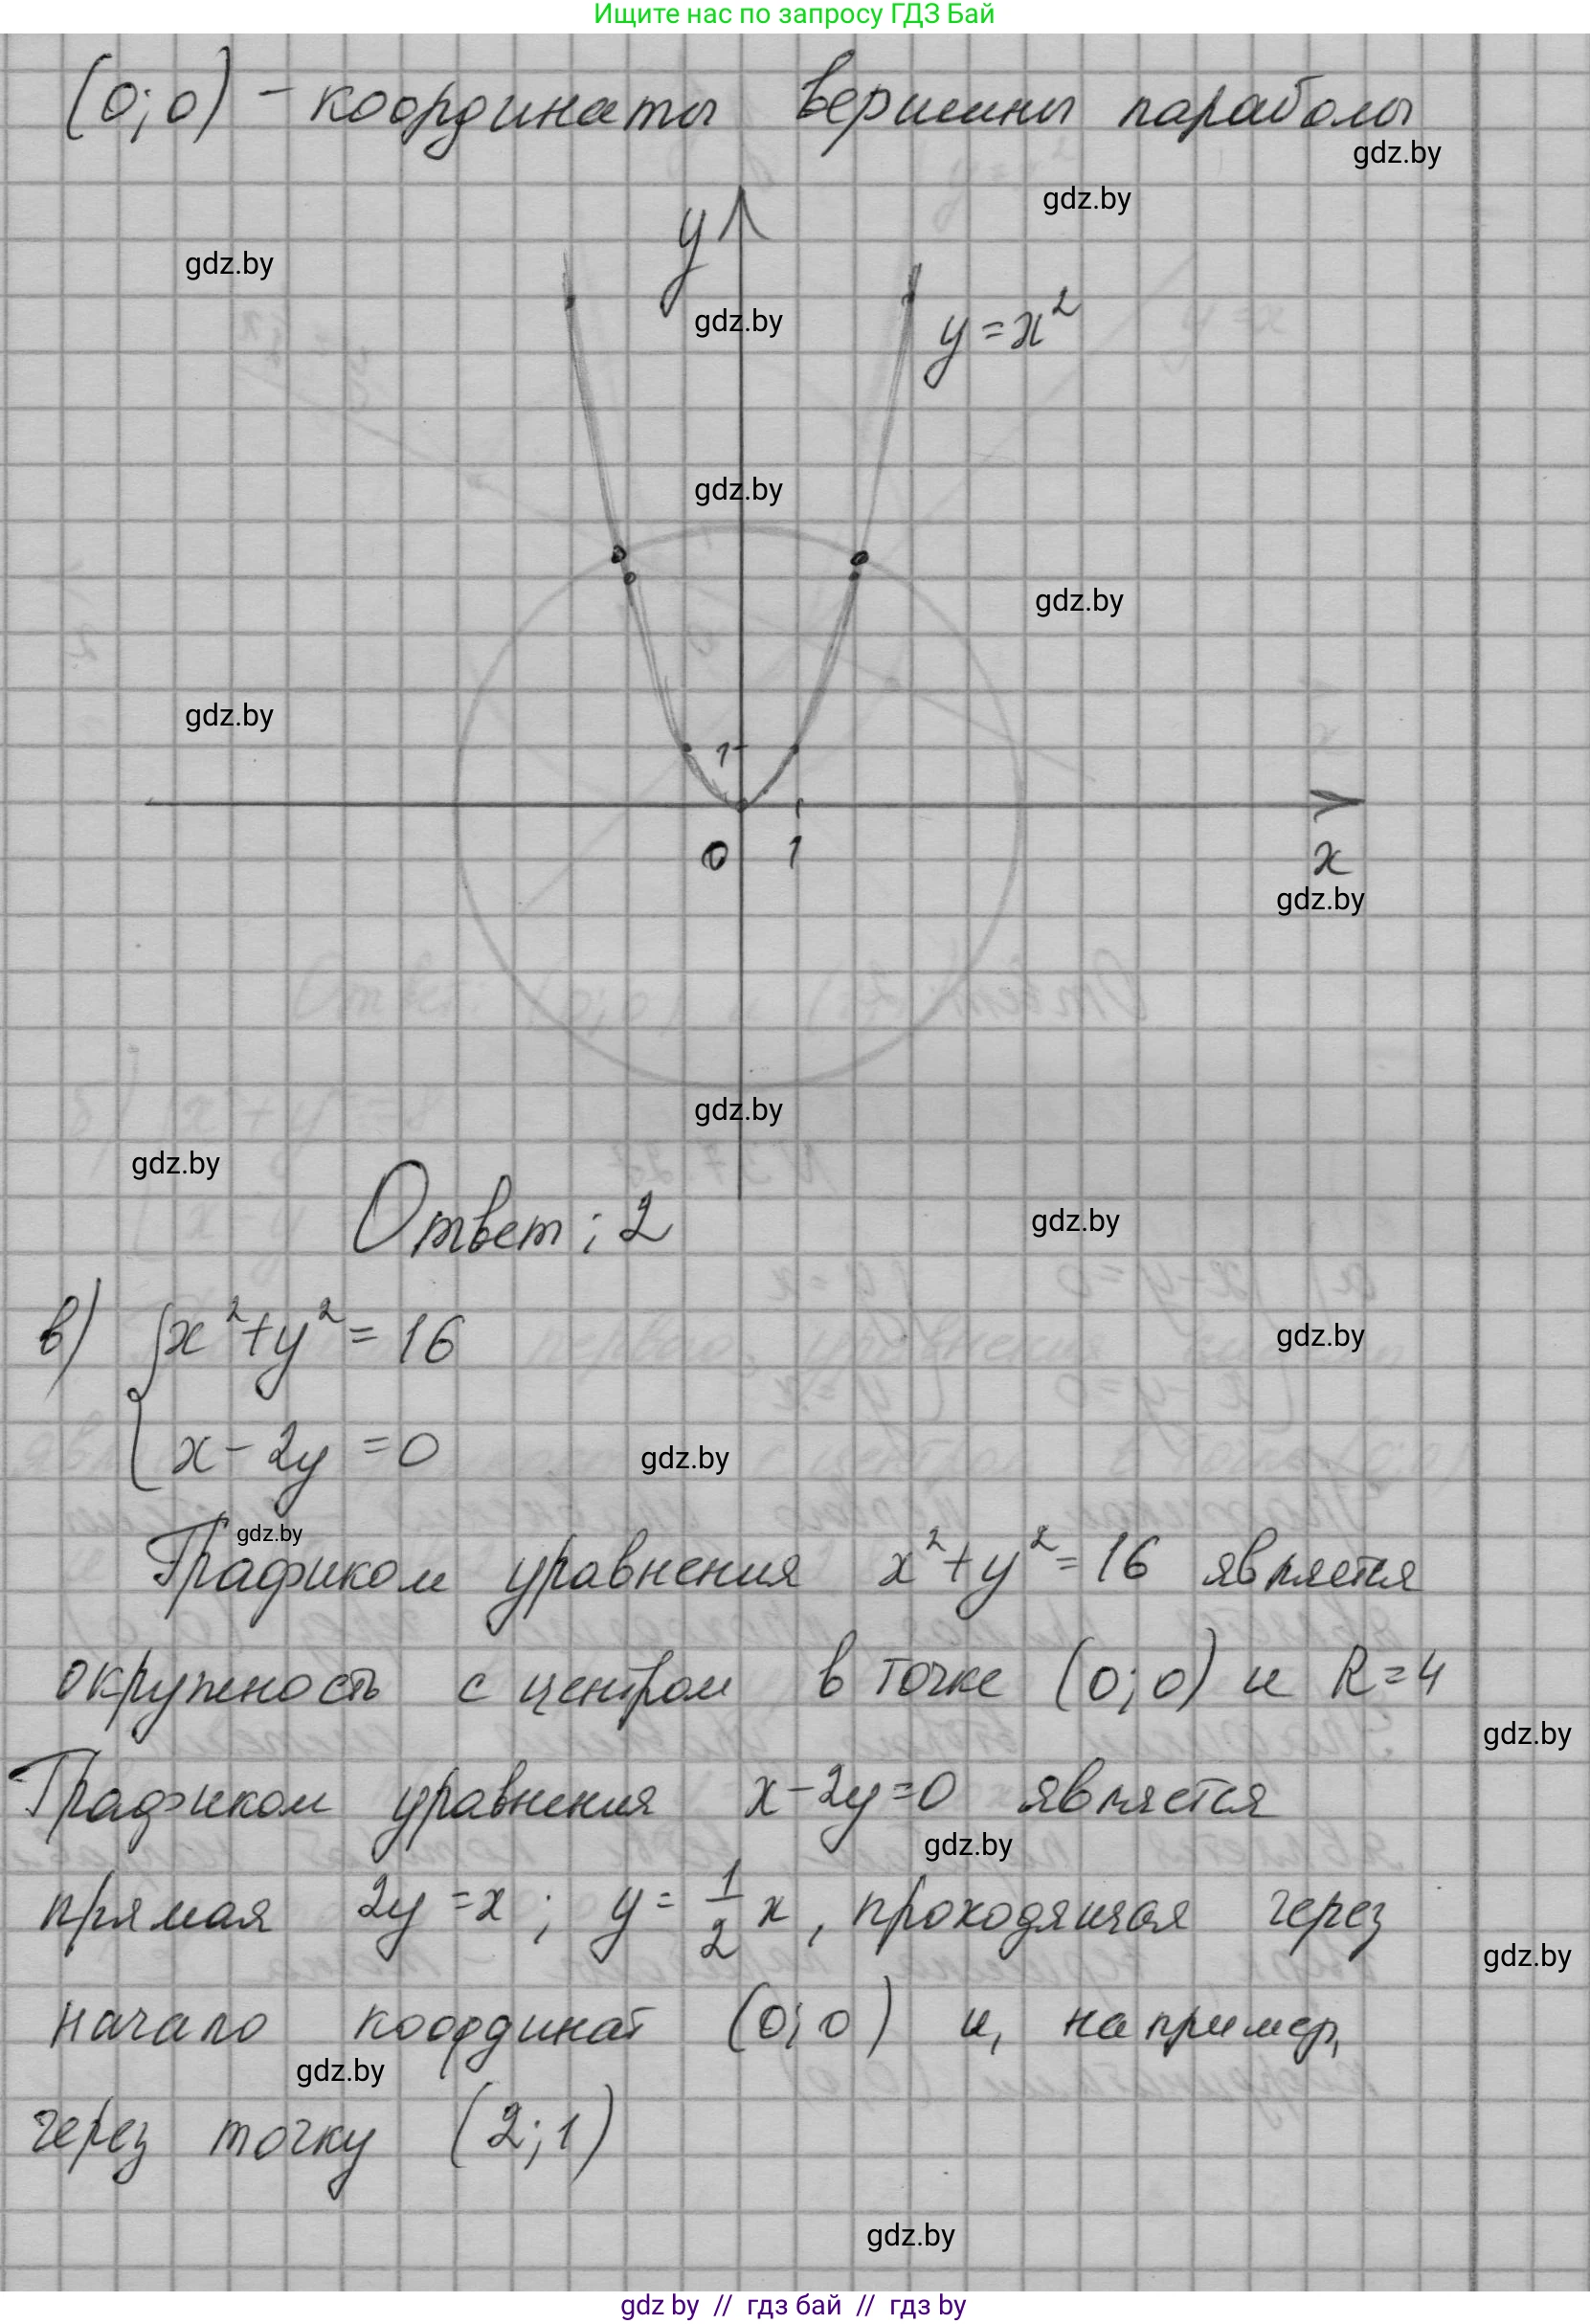 Ищите нас по запросу ГДЗ Бай
(0;0) - координаты вершины параболы
gdz.by
gdz.by
y
gdz.by
gdz.by
y = x²
gdz.by
gdz.by
gdz.by
1
0 1 x
gdz.by
gdz.by
gdz.by
Ответ: 2
gdz.by
в) { x² + y² = 16
gdz.by
x - 2y = 0
gdz.by
gdz.by
Графиком уравнения x² + y² = 16 является
окружность с центром в точке (0;0) и R = 4
gdz.by
Графиком уравнения x - 2y = 0 является
gdz.by
прямая 2y = x ; y = 1/2 x, проходящая через
gdz.by
начало координат (0;0) и, например,
gdz.by
через точку (2;1)
gdz.by
gdz by // гдз бай // гдз by